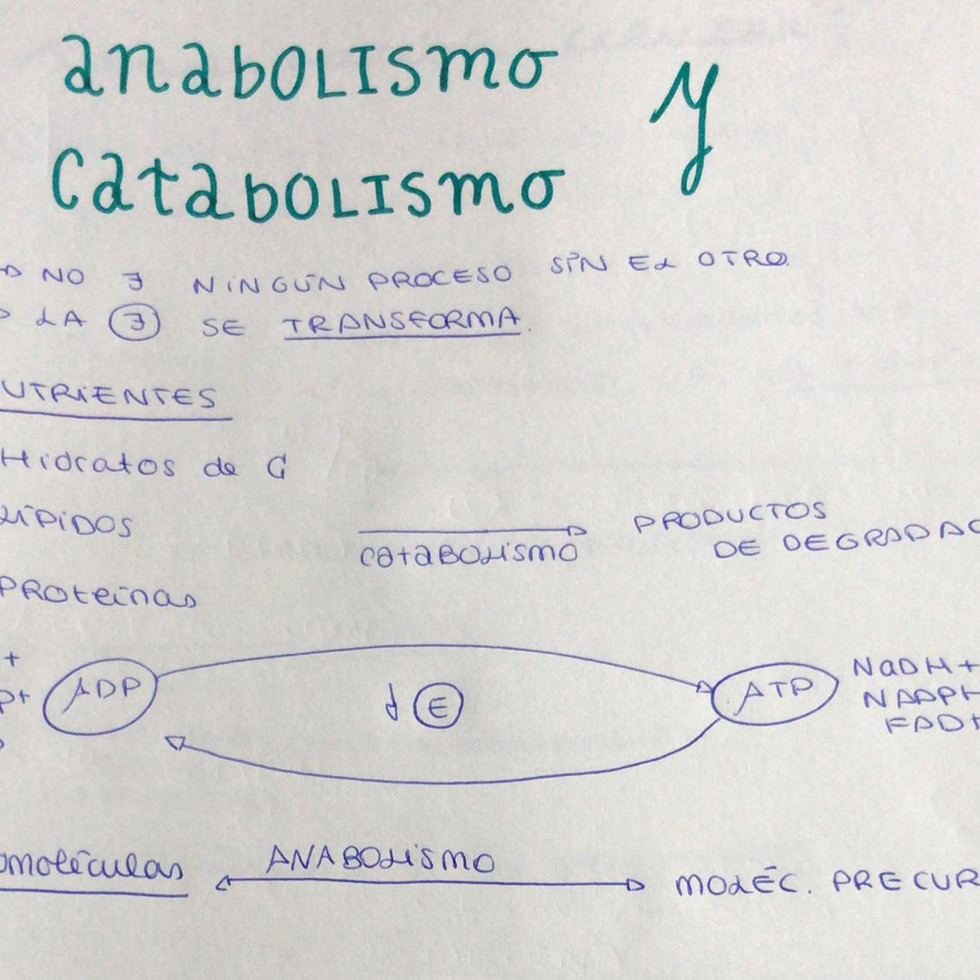 anabolismo y
catabolismo
NO ∃ NINGÚN PROCESO SIN EL OTRO.
LA Ⓔ SE TRANSFORMA.
UTRIENTES
Hidratos de C
LÍPIDOS
catabolismo
PRODUCTOS
DE DEGRADAC
PROteínas
+
ADP
d Ⓔ
ATP
NADH+
NADPH
FADH
omoléculas
ANABOLISMO
MOLÉC. PRECUR